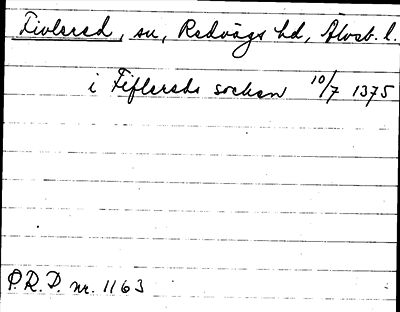 Fivlered, sn, Redvägs hd, Älvsb. l.
i Fiflereds socken 10/7 1375
P.R.P. nr. 1163